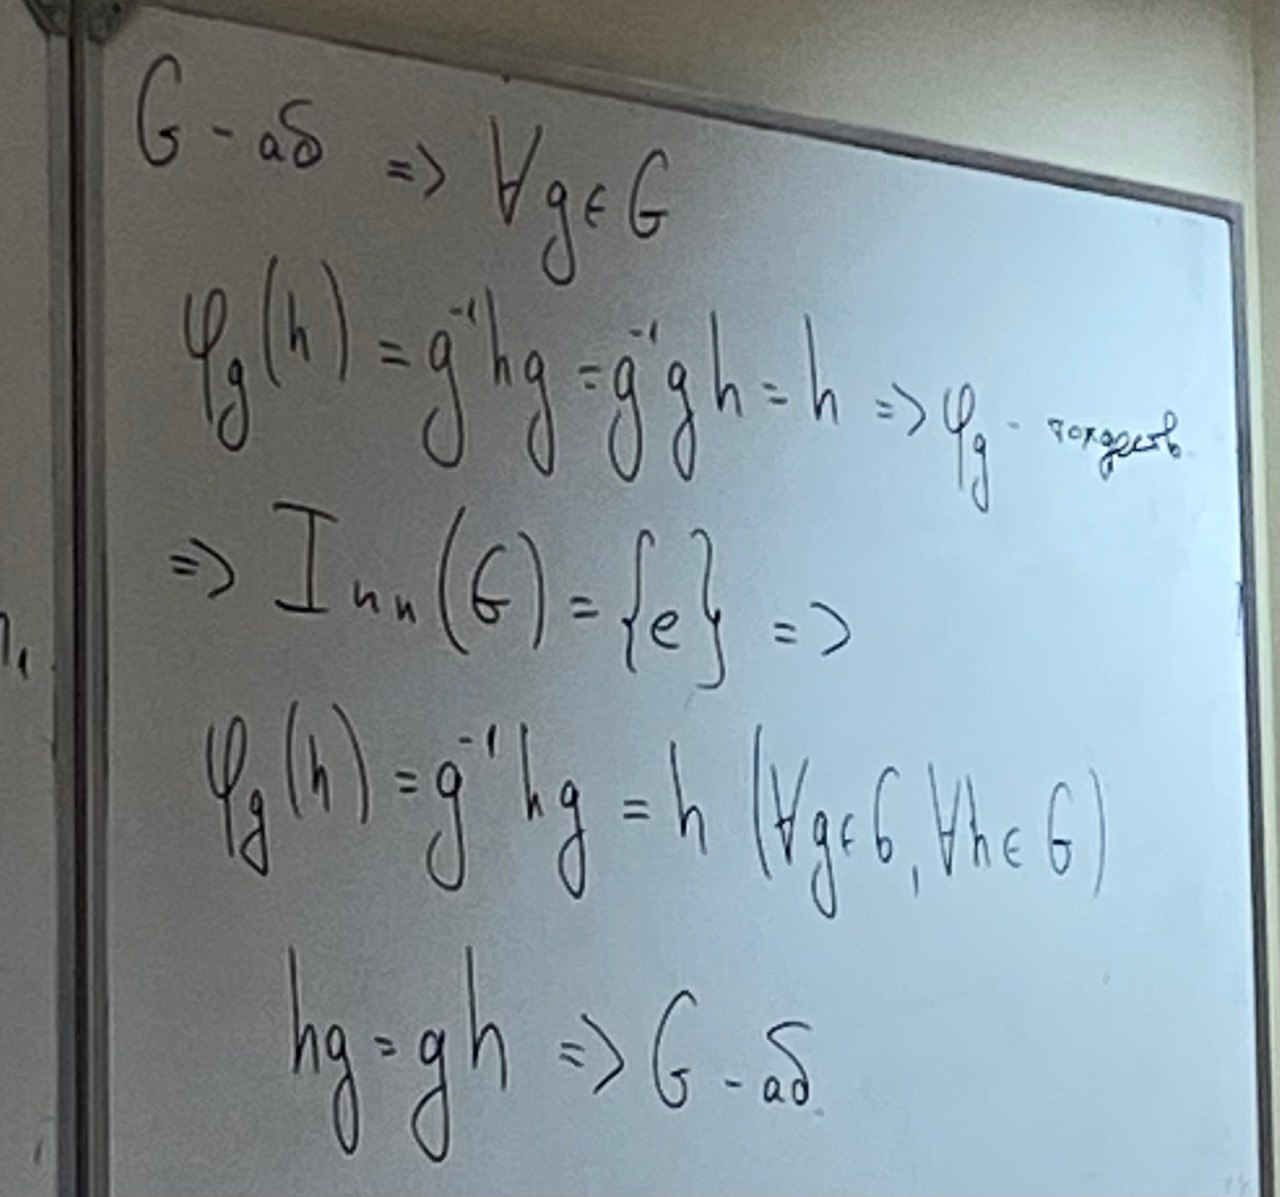 G - аб => ∀g∈G
φ_g(h) = g⁻¹hg = g⁻¹gh = h => φ_g - тождеств
=> Inn(G) = {e} =>
φ_g(h) = g⁻¹hg = h (∀g∈G, ∀h∈G)
hg = gh => G - аб